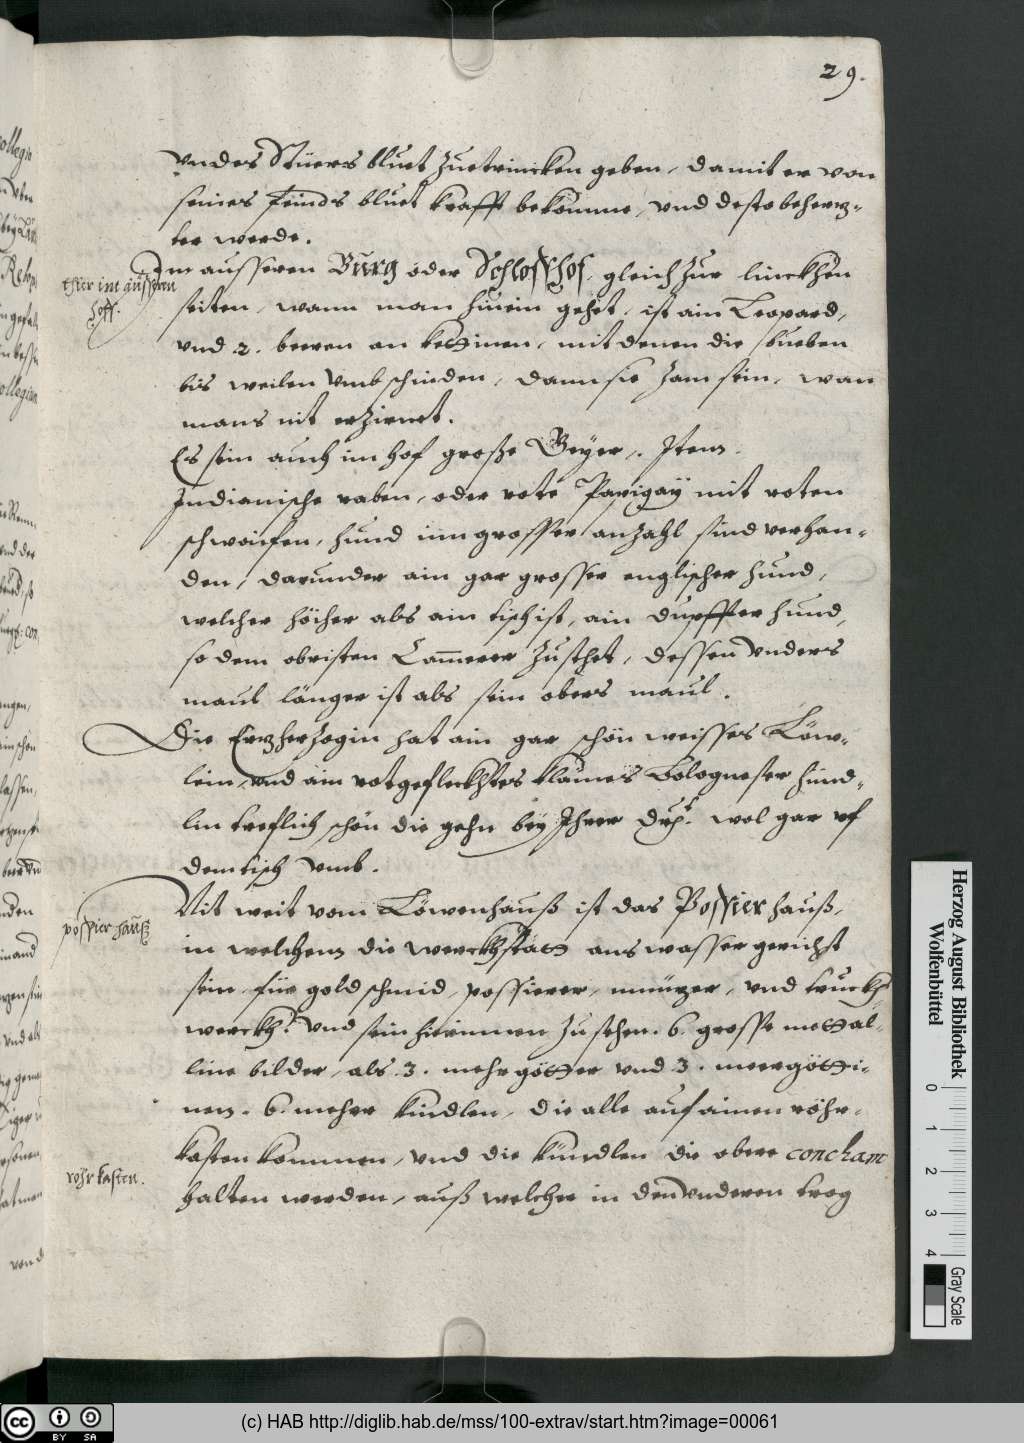 29.
vndes Stüers bluet zuetrincken geben, damit er von
seines feinds bluet krafft bekomme, vnd desto beherz-
ter werde.
thier im äussern
hoff.
Im ausseren Burg oder Schlosshof, gleich zur linckhen
seiten, wann man hinein gehet, ist ain Leopard,
vnd 2. beeren an kettinen, mit denen die bueben
bis weilen vmb schinden, dann sie zam sein, wan
mans nit erzirnet.
Es sein auch im hof große Geyer. Item
Indianische raben, oder rote Papigaÿ mit roten
schwaifen, hund inn grosser anzahl sind verhan-
den, darunder ain gar grosser englischer hund,
welcher höher als ain tisch ist, ain hund,
so dem obristen Cam̄erer zusthet, dessen vnders
maul länger ist als sein obers maul.
Die Erzherzogin hat ain gar schön weisses Löw-
lein, vnd ain rotgeflecktes klaines Bologneser hünd-
lin treflich schön die gehn beÿ Ihrer Dr. wol gar vf
dem tisch vmb.
possier hauß
Nit weit vom Löwenhauß ist das Possier hauß,
in welchem die werckhstatt ans wasser gericht
sein, für goldschmid, possierer, münzer, vnd truckh
werckh. vnd sein hierinnen zu sehen. 6. grosse mettal-
line bilder, als 3. mehrgötter vnd 3. meergötti-
nen. 6. mehr kindlen, die alle auf ainen röhr-
rohr kasten.
kasten kommen, vnd die kindlen die obere concham
halten werden, auß welcher in den vnderen trog
Herzog August Bibliothek
Wolfenbüttel
0 1 2 3 4
Gray Scale
cc BY SA
(c) HAB http://diglib.hab.de/mss/100-extrav/start.htm?image=00061